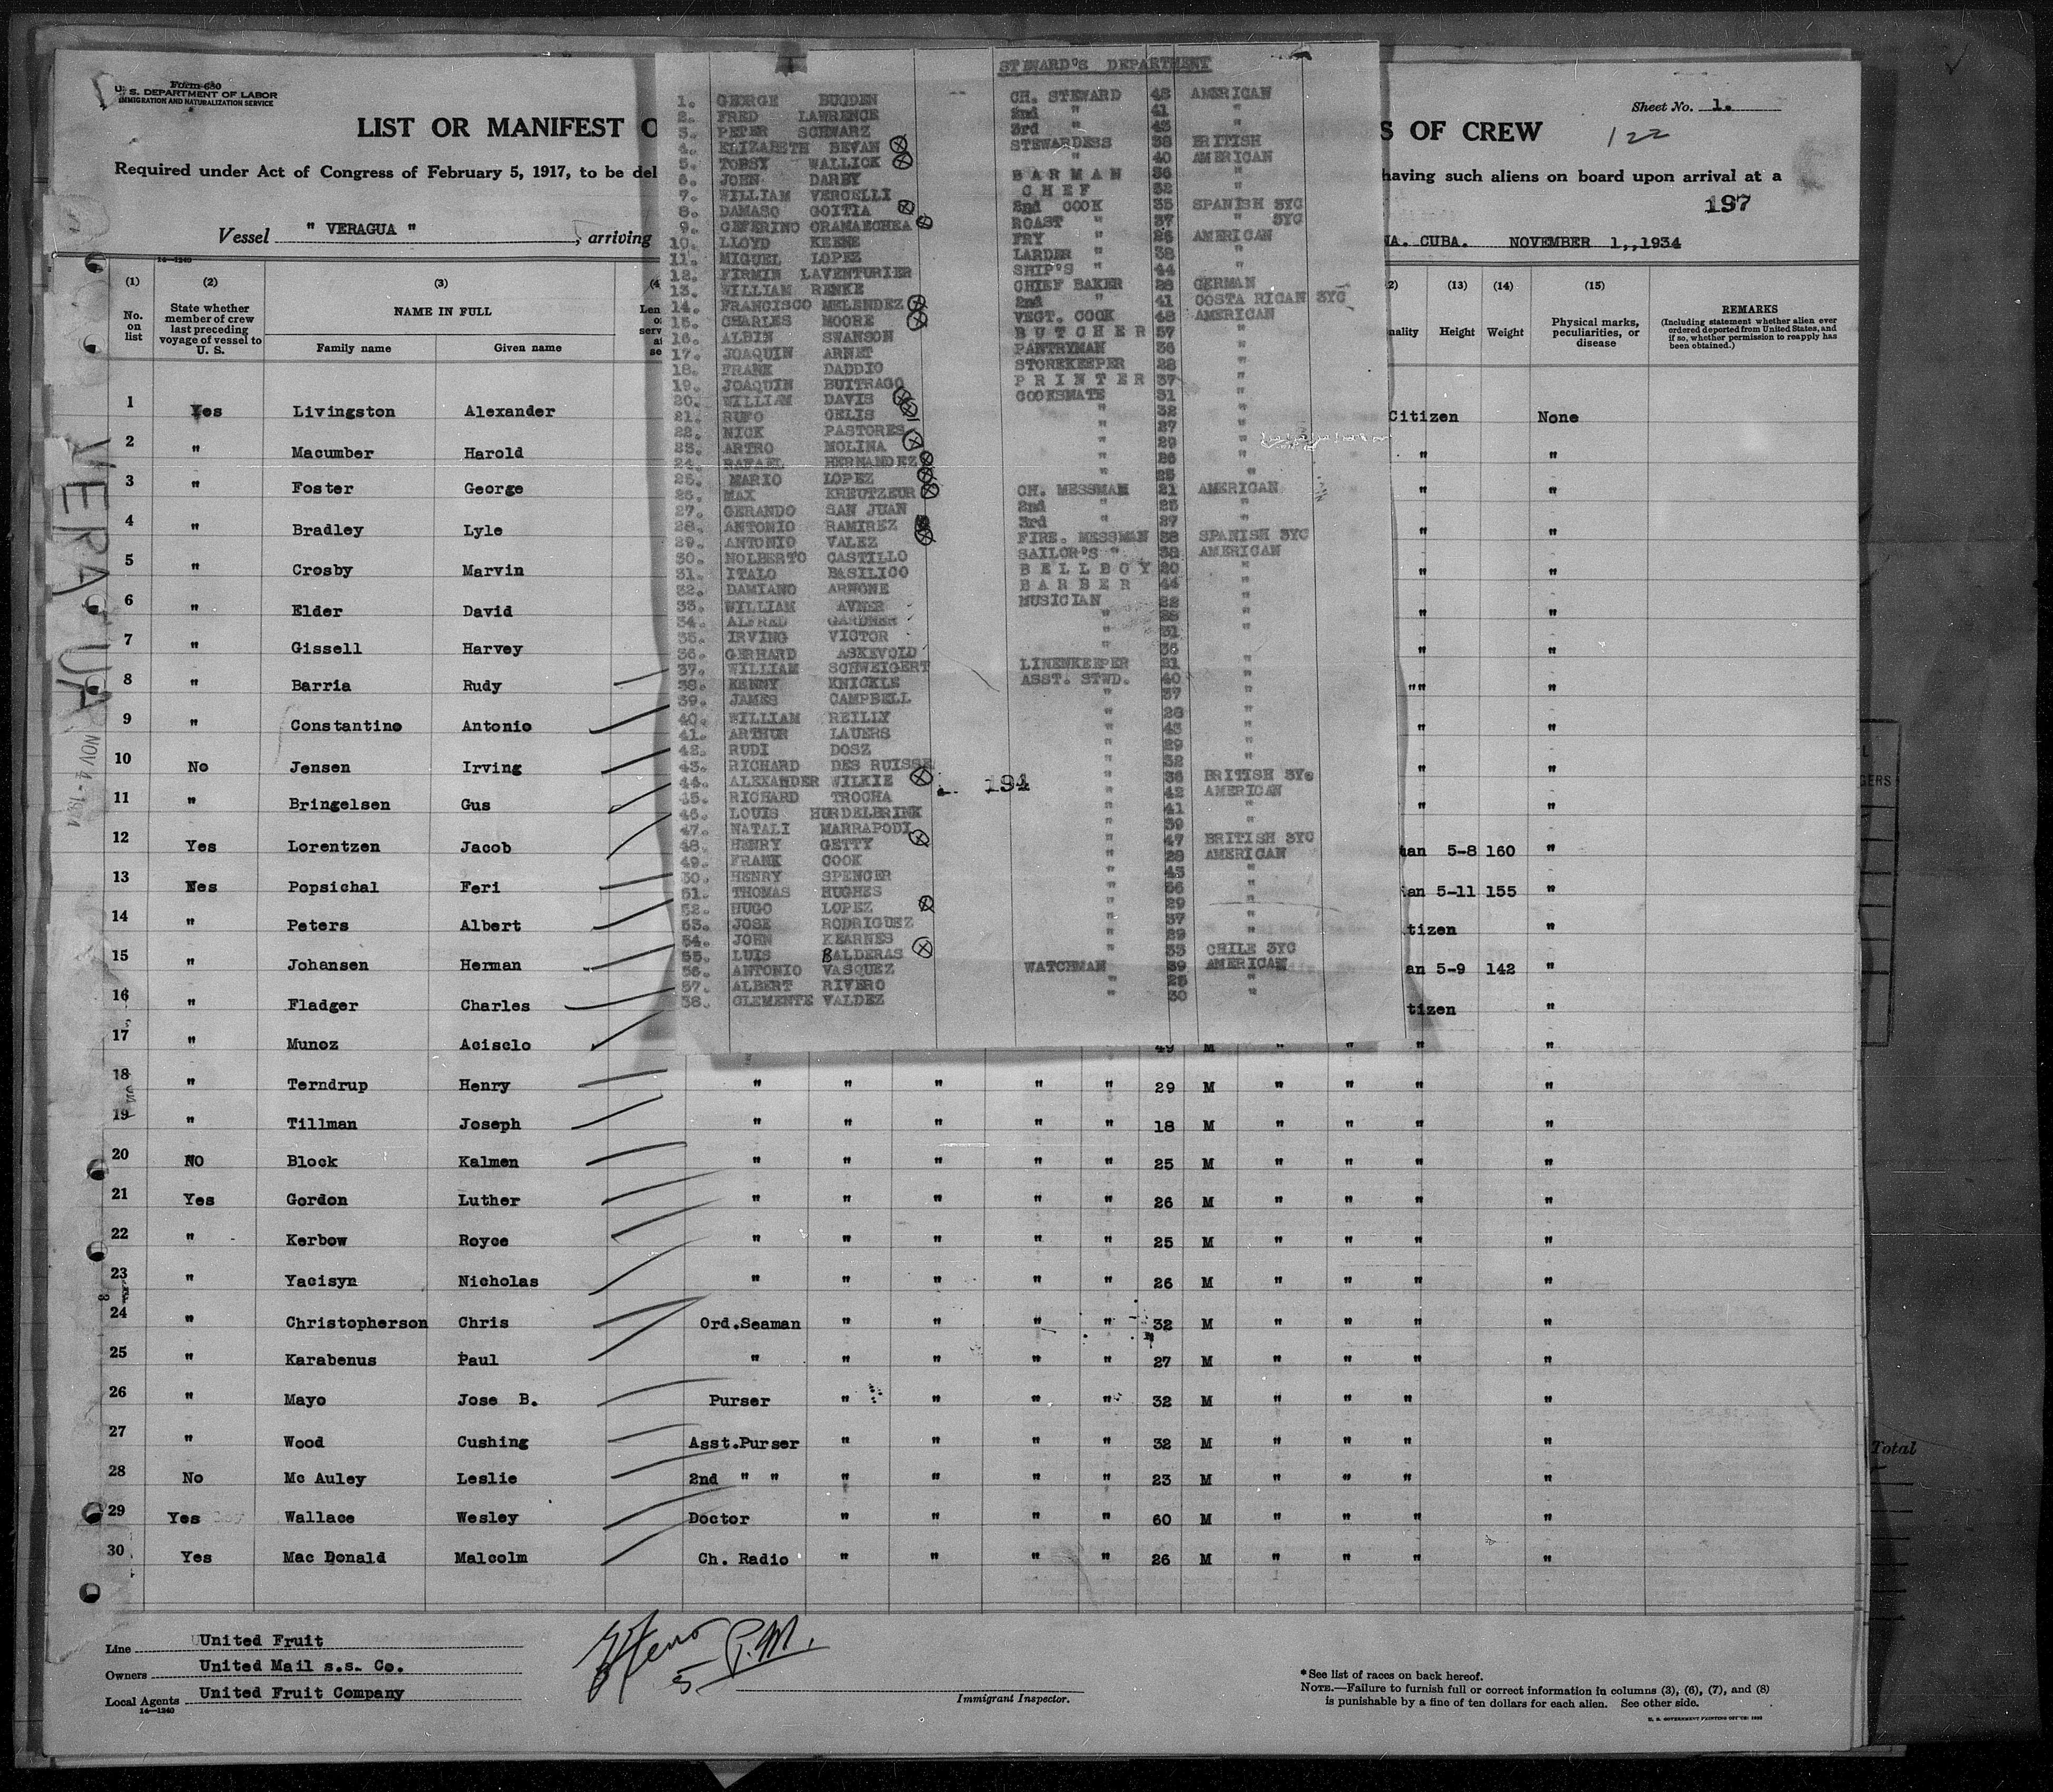 Form 680
U. S. DEPARTMENT OF LABOR
IMMIGRATION AND NATURALIZATION SERVICE
LIST OR MANIFEST O
S OF CREW
Sheet No. 1.
122
Required under Act of Congress of February 5, 1917, to be del
having such aliens on board upon arrival at a
197
Vessel " VERAGUA " , arriving
NA. CUBA. NOVEMBER 1,,1934
STEWARD'S DEPARTMENT
1. GEORGE BUGDEN CH. STEWARD 43 AMERICAN
2. FRED LAWRENCE 2nd " 41 "
3. PETER SCHWARZ 3rd " 43 "
4. ELIZABETH BEVAN STEWARDESS 38 BRITISH
5. TOBSY WALLICK " 40 AMERICAN
6. JOHN DARBY BARMAN 36 "
7. WILLIAM VERCELLI CHEF 32 "
8. DAMASO GOITIA 2nd COOK 35 SPANISH 3YC
9. CEFERINO ORAMAECHEA ROAST " 37 " 3YC
10. LLOYD KEENE FRY " 26 AMERICAN
11. MIGUEL LOPEZ LARDER " 38 "
12. FIRMIN LAVENTURIER SHIP'S " 44 "
13. WILLIAM RENKE CHIEF BAKER 28 GERMAN
14. FRANCISCO MELENDEZ 2nd " 41 COSTA RICAN 3YC
15. CHARLES MOORE VEGT. COOK 48 AMERICAN
16. ALBIN SWANSON BUTCHER 57 "
17. JOAQUIN ARNET PANTRYMAN 36 "
18. FRANK DADDIO STOREKEEPER 28 "
19. JOAQUIN BUITRAGO PRINTER 37 "
20. WILLIAM DAVIS COOKSMATE 31 "
21. RUFO GELIS " 32 "
22. NICK PASTORES " 27 "
23. ARTRO MOLINA " 29 "
24. RAFAEL HERNANDEZ " 26 "
25. MARIO LOPEZ " 25 "
26. MAX KREUTZEUR CH. MESSMAN 21 AMERICAN
27. GERANDO SAN JUAN 2nd " 25 "
28. ANTONIO RAMIREZ 3rd " 27 "
29. ANTONIO VALEZ FIRE. MESSMAN 38 SPANISH 3YC
30. NOLBERTO CASTILLO SAILOR'S " 32 AMERICAN
31. ITALO BASILICO BELLBOY 20 "
32. DAMIANO ARNONE BARBER 44 "
33. WILLIAM AVNER MUSICIAN 22 "
34. ALFRED GARDNER " "
35. IRVING VICTOR " 31 "
36. GERHARD ASKEVOLD "
37. WILLIAM SCHWEIGERT LINENKEEPER 21 "
38. KENNY KNICKLE ASST. STWD. 40 "
39. JAMES CAMPBELL " 37 "
40. WILLIAM REILLY " 28 "
41. ARTHUR LAUERS " 43 "
42. RUDI DOSZ " 29 "
43. RICHARD DES RUISSE " 32 "
44. ALEXANDER WILKIE " 36 BRITISH 3Yc
194
45. RICHARD TROCHA " 42 AMERICAN
46. LOUIS HURDELBRINK " 41 "
47. NATALI MARRAPODI " 39 "
48. HENRY GETTY " 47 BRITISH 3YC
49. FRANK COOK " 28 AMERICAN
50. HENRY SPENCER " 43 "
51. THOMAS HUGHES " 36 "
52. HUGO LOPEZ " 29 "
53. JOSE RODRIGUEZ " 37 "
54. JOHN KEARNES " 29 "
55. LUIS BALDERAS " 33 CHILE 3YC
56. ANTONIO VASQUEZ WATCHMAN 39 AMERICAN
57. ALBERT RIVERO " 25 "
58. CLEMENTE VALDEZ " 30 "
(1) (2) (3) (4 2) (13) (14) (15)
No. on list
State whether member of crew last preceding voyage of vessel to U. S.
NAME IN FULL
Family name Given name
nality Height Weight
Physical marks, peculiarities, or disease
REMARKS
(Including statement whether alien ever ordered deported from United States, and if so, whether permission to reapply has been obtained.)
1 Yes Livingston Alexander Citizen None
2 " Macumber Harold " "
3 " Foster George " "
4 " Bradley Lyle " "
5 " Crosby Marvin " "
6 " Elder David " "
7 " Gissell Harvey " "
8 " Barria Rudy "" "
9 " Constantino Antonio " "
10 No Jensen Irving " "
11 " Bringelsen Gus " "
12 Yes Lorentzen Jacob an 5-8 160 "
13 Yes Popsichal Feri an 5-11 155 "
14 " Peters Albert tizen "
15 " Johansen Herman an 5-9 142 "
16 " Fladger Charles tizen "
17 " Munoz Acisclo 49 M " " " "
18 " Terndrup Henry " " " " " 29 M " " " "
19 " Tillman Joseph " " " " " 18 M " " " "
20 NO Block Kalmen " " " " " 25 M " " " "
21 Yes Gordon Luther " " " " " 26 M " " " "
22 " Kerbow Royce " " " " " 25 M " " " "
23 " Yacisyn Nicholas " " " " " 26 M " " " "
24 " Christopherson Chris Ord.Seaman " " " " 32 M " " " "
25 " Karabenus Paul " " " " " 27 M " " " "
26 " Mayo Jose B. Purser " " " " 32 M " " " "
27 " Wood Cushing Asst.Purser " " " " 32 M " " " "
28 No Mc Auley Leslie 2nd " " " " " " 23 M " " " "
29 Yes Wallace Wesley Doctor " " " " 60 M " " " "
30 Yes Mac Donald Malcolm Ch. Radio " " " " 26 M " " " "
VERAGUA
NOV 4 - 1934
GERS
Total
Line United Fruit
Owners United Mail s.s. Co.
Local Agents United Fruit Company
14—1240
5 P.M.
Immigrant Inspector.
*See list of races on back hereof.
NOTE.—Failure to furnish full or correct information in columns (3), (6), (7), and (8)
is punishable by a fine of ten dollars for each alien. See other side.
U. S. GOVERNMENT PRINTING OFFICE: 1933